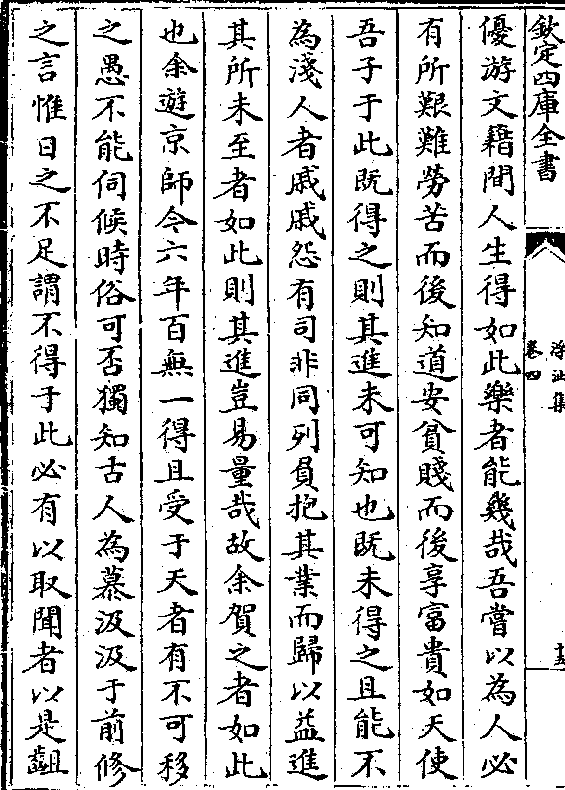 欽定四庫全書
浮沚集
卷四
十五
優游文籍間人生得如此樂者能幾哉吾嘗以為人必
有所艱難勞苦而後知道安貧賤而後享富貴如天使
吾子于此既得之則其進未可知也既未得之且能不
為淺人者戚戚怨有司非同列員抱其業而歸以益進
其所未至者如此則其進豈易量哉故余賀之者如此
也余遊京師今六年百無一得且受于天者有不可移
之愚不能伺候時俗可否獨知古人為慕汲汲于前修
之言惟日之不足謂不得于此必有以取聞者以是齟